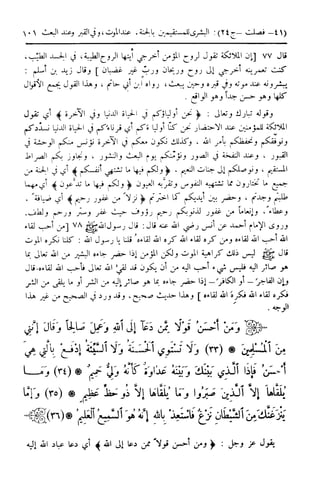 (٤١- فصلت -ج٢٤): البشرى للمستقيمين بالجنة. عند الموت، وفي القبر وعند البعث ١٠١
قال ٧٧ [إن الملائكة تقول لروح المؤمن أخرجي أيتها الروح الطيبة، في الجسد الطيّب،
كنت تعمرينه أخرجي إلى روح وريحان وربّ غير غضبان] وقال زيد بن أسلم:
يبشرونه عند موته وفي قبره وحين يبعث، رواه ابن أبي حاتم، وهذا القول يجمع الأقوال
كلها وهو حسن جداً وهو الواقع.
وقوله تبارك وتعالى: ﴿نحن أولياؤكم في الحياة الدنيا وفي الآخرة﴾ أي تقول
الملائكة للمؤمنين عند الاحتضار نحن كنّا أولياءكم أي قرناءكم في الحياة الدنيا نسددكم
ونوفقكم ونحفظكم بأمر الله. وكذلك نكون معكم في الآخرة نؤنس منكم الوحشة في
القبور، وعند النفخة في الصور ونؤمّنكم يوم البعث والنشور، ونجاوز بكم الصراط
المستقيم، ونوصلكم إلى جنات النعيم. ﴿ولكم فيها ما تشتهي أنفسكم﴾ أي في الجنة من
جميع ما تختارون مما تشتهيه النفوس وتقرّ به العيون ﴿ولكم فيها ما تدّعون﴾ أي مهما
طلبتم وجدتم، وحضر بين أيديكم كما اخترتم ﴿نزلاً من غفور رحيم﴾ أي ضيافة.
وعطاء. وإنعاماً من غفور لذنوبكم رحيم رؤوف حيث غفر وستر ورحم ولطف.
وروى الإمام أحمد عن أنس رضي الله عنه قال: قال رسول الله ﷺ ٧٨ [من أحب لقاء
الله أحب الله لقاءه ومن كره لقاء الله كره الله لقاءه] قلنا يا رسول الله: كلنا نكره الموت
قال ﷺ ليس ذلك كراهية الموت ولكن المؤمن إذا حضر جاءه البشير من الله تعالى بما
هو صائر إليه فليس شيء أحب اليه من أن يكون قد لقي الله تعالى فأحب الله لقاءه. قال
وإن الفاجر - أو الكافر - إذا حضر جاءه بما هو صائر إليه من الشر أو ما يلقى من الشر
فكره لقاء الله فكرهُ الله لقاءه] وهذا حديث صحيح. وقد ورد في الصحيح من غير هذا
الوجه.
وَمَنْ أَحْسَنُ قَوْلًا مِّمَّن دَعَآ إِلَى ٱللَّهِ وَعَمِلَ صَٰلِحًا وَقَالَ إِنَّنِي
مِنَ ٱلْمُسْلِمِينَ * (٣٣) وَلَا تَسْتَوِي ٱلْحَسَنَةُ وَلَا ٱلسَّيِّئَةُ ٱدْفَعْ بِٱلَّتِي هِيَ
أَحْسَنُ فَإِذَا ٱلَّذِي بَيْنَكَ وَبَيْنَهُ عَدَٰوَةٌ كَأَنَّهُ وَلِيٌّ حَمِيمٌ * (٣٤) وَمَا
يُلَقَّىٰهَآ إِلَّا ٱلَّذِينَ صَبَرُوا وَمَا يُلَقَّىٰهَآ إِلَّا ذُو حَظٍّ عَظِيمٍ * (٣٥) وَإِمَّا
يَنزَغَنَّكَ مِنَ ٱلشَّيْطَٰنِ نَزْغٌ فَٱسْتَعِذْ بِٱللَّهِ إِنَّهُ هُوَ ٱلسَّمِيعُ ٱلْعَلِيمُ * (٣٦)
يقول عز وجل: ﴿ومن أحسن قولاً ممن دعا إلى الله﴾ أي دعا عباد الله إليه